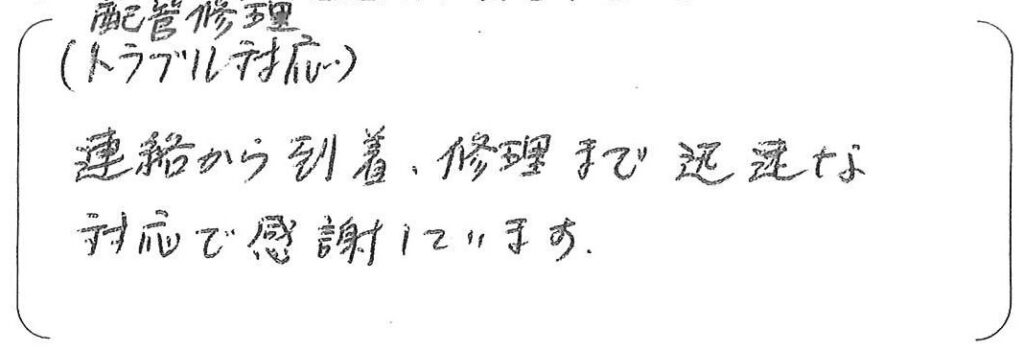 配管修理
(トラブル対応)
連絡から到着、修理まで迅速な
対応で感謝しています.